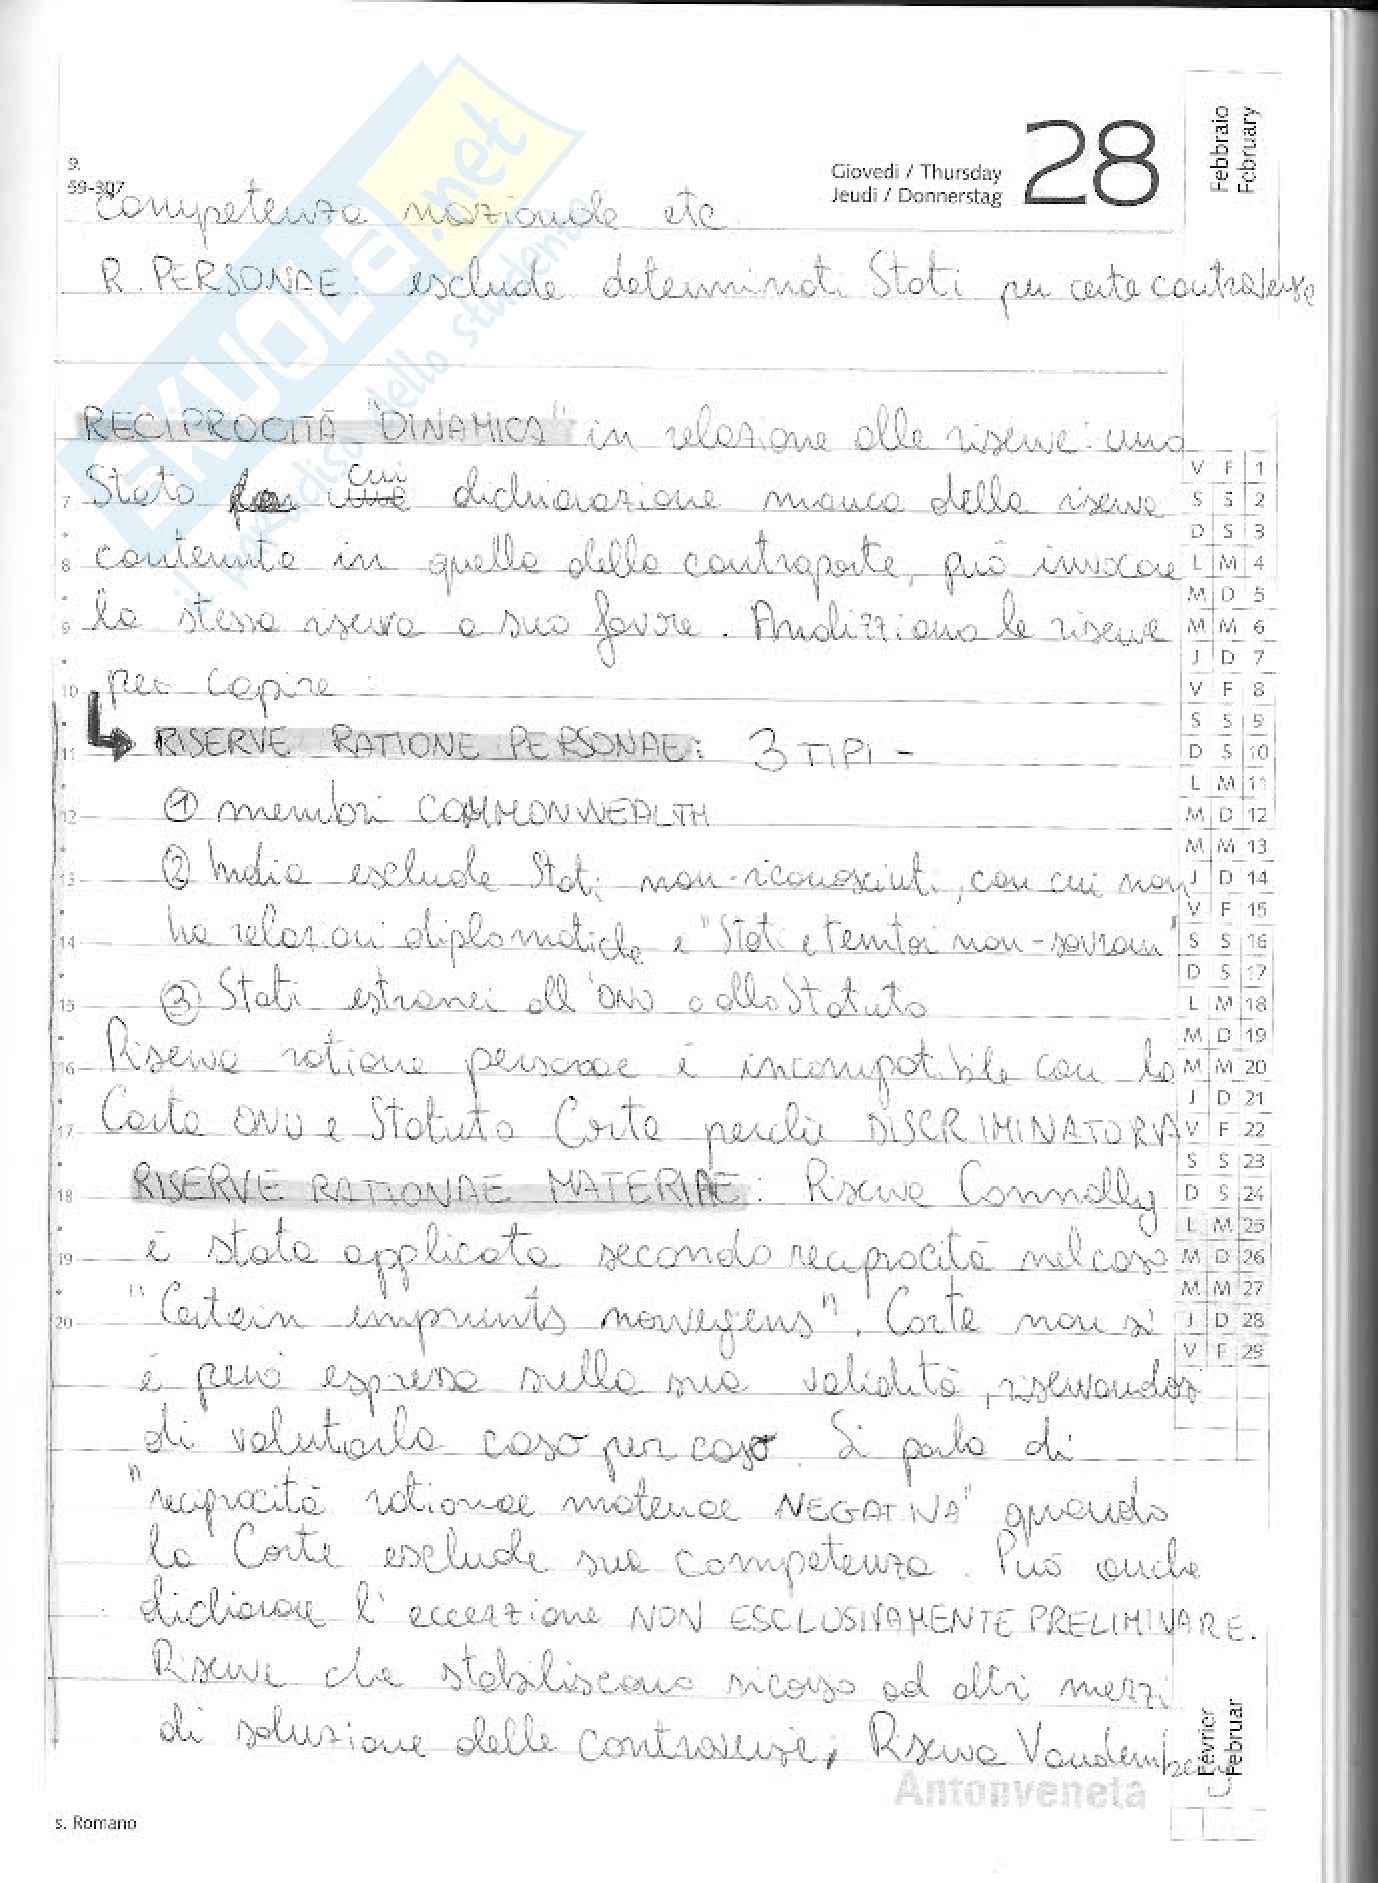 Febbraio
February
28
Giovedì / Thursday
Jeudi / Donnerstag
9.
59-307
SKUOLA.net
il paradiso dello studente
competenza nazionale etc
R. PERSONAE: esclude determinati Stati per certe controversie
RECIPROCITÀ "DINAMICA" in relazione alle riserve: uno
Stato cui dichiarazione manca della riserva
contenuta in quella della controparte, può invocare
la stessa riserva a suo favore. Analizziamo le riserve
per capire:
RISERVE RATIONE PERSONAE: 3 TIPI -
① membri COMMONWEALTH
② India esclude Stati non-riconosciuti, con cui non
ha relazioni diplomatiche e "Stati e territori non-sovrani"
③ Stati estranei all'ONU o allo Statuto
Riserva ratione personae è incompatibile con la
Carta ONU e Statuto Corte perchè DISCRIMINATORIA
RISERVE RATIONAE MATERIAE: Riserva Connally
è stata applicata secondo reciprocità nel caso
"Certain emprunts norvegens". Corte non si
è però espressa sulla sua validità, riservandosi
di valutarla caso per caso. Si parla di
"reciprocità rationae materiae NEGATIVA" quando
la Corte esclude sua competenza. Può anche
dichiarare l'eccezione NON ESCLUSIVAMENTE PRELIMINARE.
Riserve che stabiliscono ricorso ad altri mezzi
di soluzione delle controversie; Riserva Vandemberg
7
8
9
10
11
12
13
14
15
16
17
18
19
20
V F 1
S S 2
D S 3
L M 4
M D 5
M M 6
J D 7
V F 8
S S 9
D S 10
L M 11
M D 12
M M 13
J D 14
V F 15
S S 16
D S 17
L M 18
M D 19
M M 20
J D 21
V F 22
S S 23
D S 24
L M 25
M D 26
M M 27
J D 28
V F 29
Février
Februar
Antonveneta
s. Romano